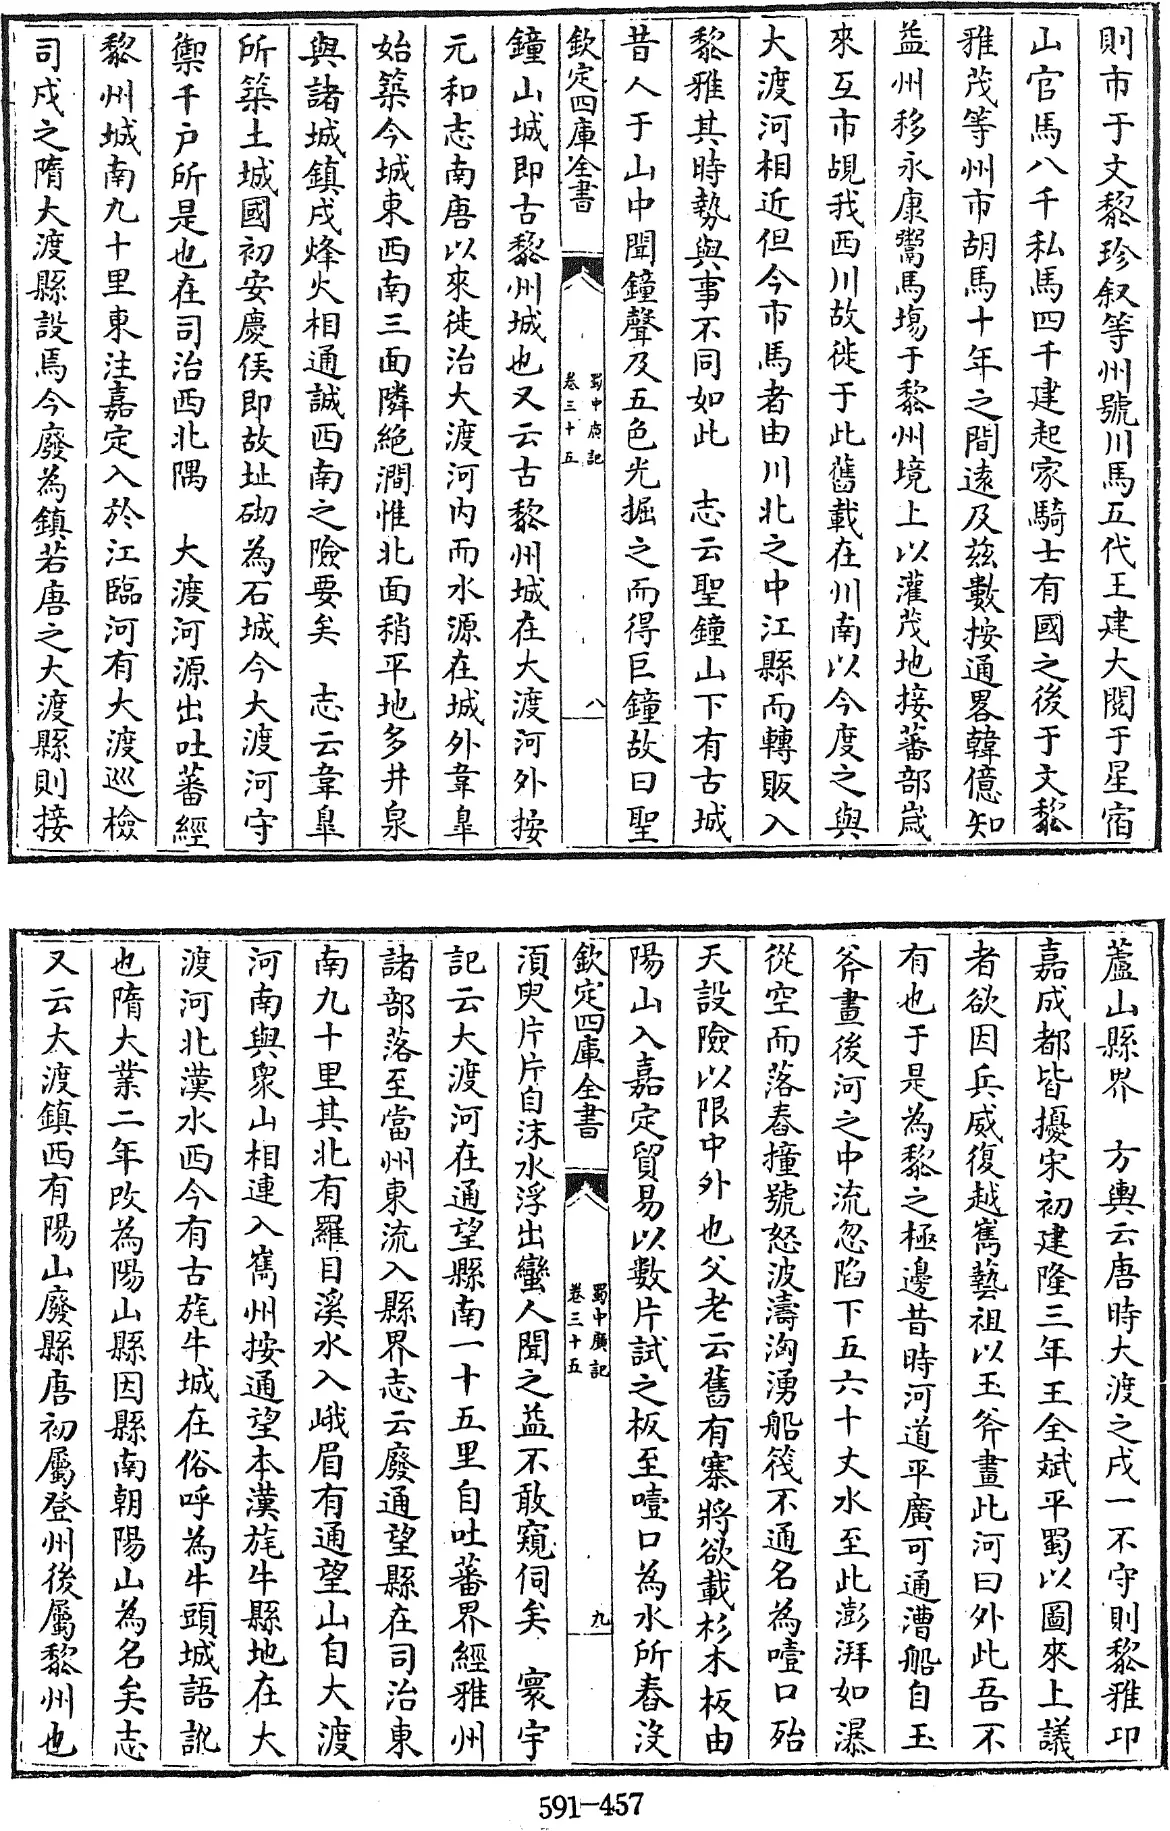 則市于文黎珍叙等州號川馬五代王建大閱于星宿
山官馬八千私馬四千建起家騎士有國之後于文黎
雅茂等州市胡馬十年之間遠及兹數按通畧韓億知
益州移永康鬻馬場于黎州境上以灌茂地接蕃部歲
來互市覘我西川故徙于此舊載在川南以今度之與
大渡河相近但今市馬者由川北之中江縣而轉販入
黎雅其時勢與事不同如此　志云聖鐘山下有古城
昔人于山中聞鐘聲及五色光掘之而得巨鐘故曰聖
欽定四庫全書
蜀中廣記
卷三十五
八
鐘山城即古黎州城也又云古黎州城在大渡河外按
元和志南唐以來徙治大渡河内而水源在城外韋臯
始築今城東西南三面隣絶澗惟北面稍平地多井泉
與諸城鎮戍烽火相通誠西南之險要矣　志云韋臯
所築土城國初安慶侯即故址砌為石城今大渡河守
禦千户所是也在司治西北隅　大渡河源出吐蕃經
黎州城南九十里東注嘉定入於江臨河有大渡巡檢
司戍之隋大渡縣設焉今廢為鎮若唐之大渡縣則接
蘆山縣界　方輿云唐時大渡之戍一不守則黎雅卭
嘉成都皆擾宋初建隆三年王全斌平蜀以圖來上議
者欲因兵威復越嶲藝祖以玉斧畫此河曰外此吾不
有也于是為黎之極邊昔時河道平廣可通漕船自玉
斧畫後河之中流忽陷下五六十丈水至此澎湃如瀑
從空而落舂撞號怒波濤洶湧船筏不通名為噎口殆
天設險以限中外也父老云舊有寨將欲載杉木板由
陽山入嘉定貿易以數片試之板至噎口為水所舂没
欽定四庫全書
蜀中廣記
卷三十五
九
須臾片片自沫水浮出蠻人聞之益不敢窺伺矣　寰宇
記云大渡河在通望縣南一十五里自吐蕃界經雅州
諸部落至當州東流入縣界志云廢通望縣在司治東
南九十里其北有羅目溪水入峨眉有通望山自大渡
河南與衆山相連入嶲州按通望本漢旄牛縣地在大
渡河北漢水西今有古旄牛城在俗呼為牛頭城語訛
也隋大業二年改為陽山縣因縣南朝陽山為名矣志
又云大渡鎮西有陽山廢縣唐初屬登州後屬黎州也
591—457